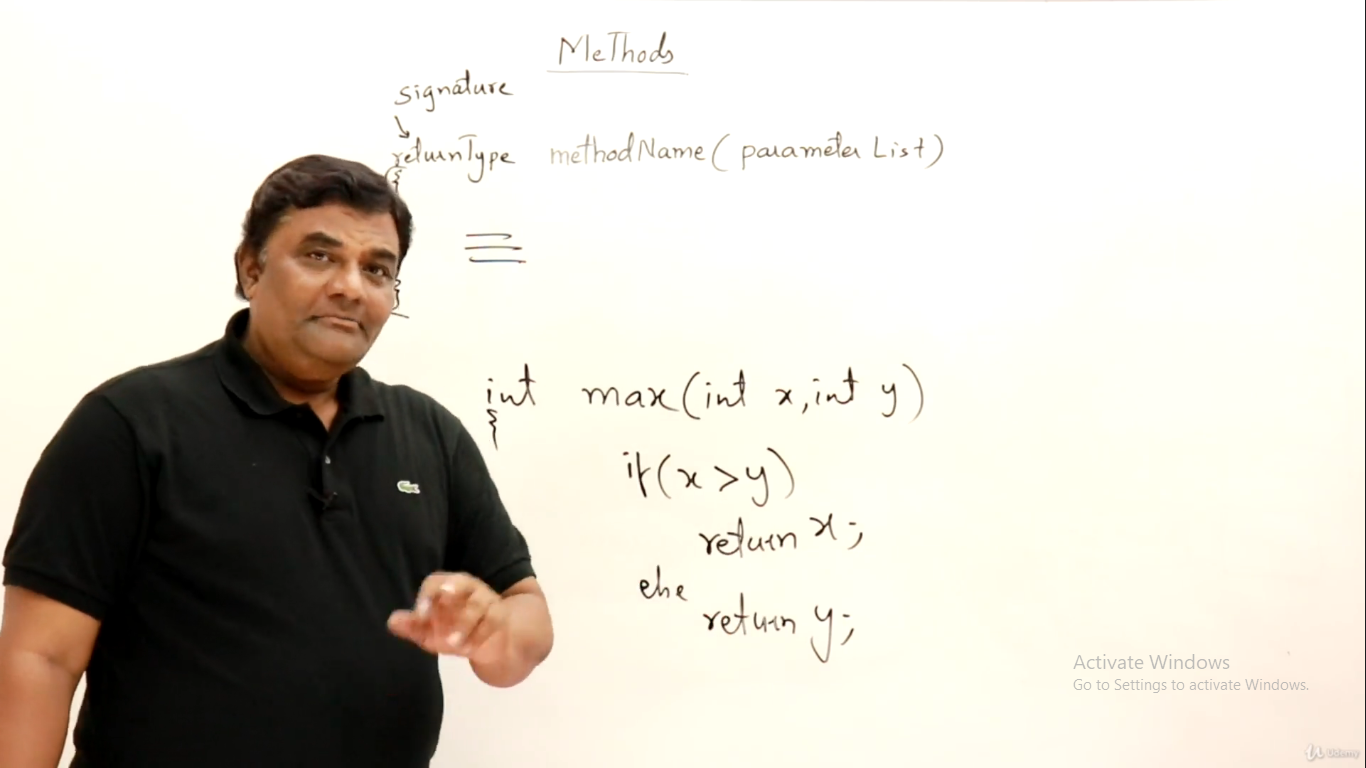 Methods
signature
returnType methodName( parameter List)
{
}
int max(int x, int y)
{
if(x>y)
return x;
else
return y;
Activate Windows
Go to Settings to activate Windows.
Udemy